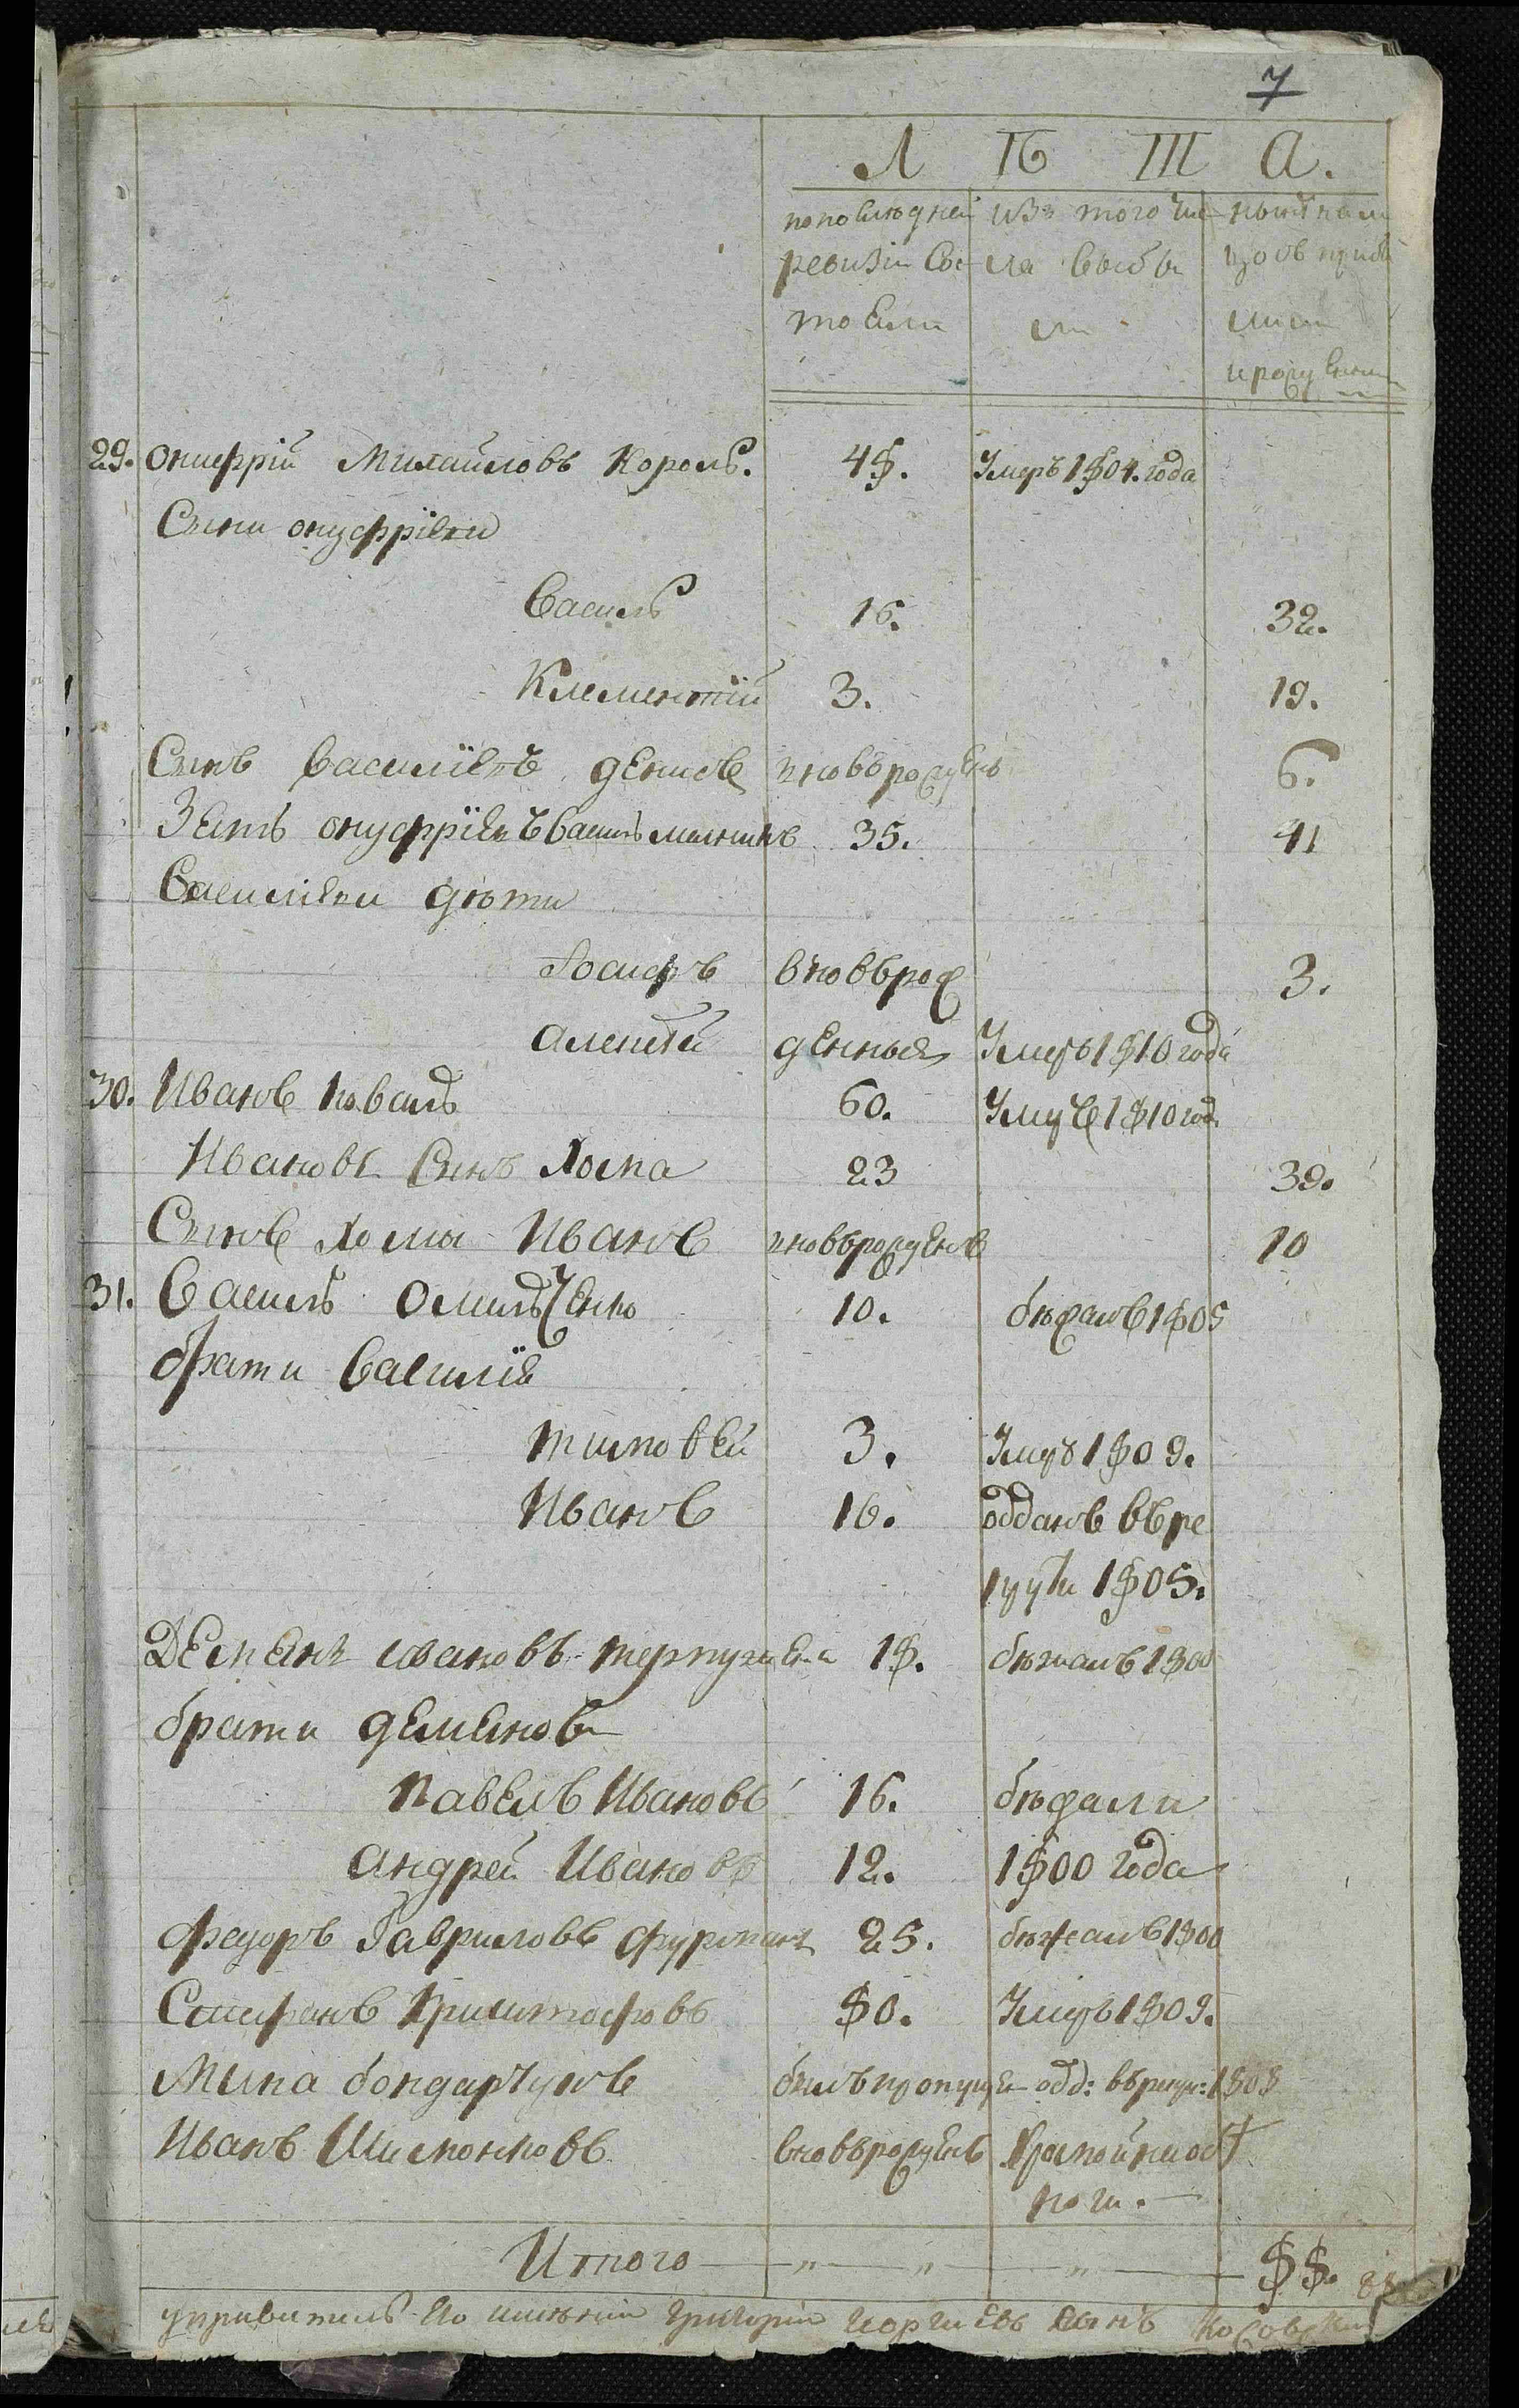 7
Л Ѣ Т А.
по последней изъ того чис нынѣ на ли
ревизіи сос ла выбы цо съ прибы
тояли ли лими
и рожденны
29. Онисфрій Михайловъ Король. 48. Умеръ 1804. года
Сыни онуфріеви
Василь 16. 32.
Клементій 3. 19.
Сынъ василіевъ денисъ вновьрожденъ 6.
Зять онуфріевъ Василь малининъ 35. 41
Василиеви дѣти
Іосифъ вновьрож 3.
алексѣй денныя Умеръ 1810 года
30. Иванъ коваль 60. Умеръ 1810 год.
Ивановъ сынъ Хома 23 39.
Сынъ Хомы Иванъ вновьрожденъ 10
31. Василь Омильченко 10. бѣжалъ 1805
брати василія
тимовѣй 3. Умеръ 1809.
Иванъ 16. отданъ въ ре
круты 1805.
Демянъ ивановъ 18. бѣжалъ 1800
брати демянови
павелъ Ивановъ 16. бѣжали
андрей Ивановъ 12. 1800 года
федоръ Гавриловъ фурманъ 25. бѣжалъ 1800
Стефанъ Криштофовъ 80. Умеръ 1809.
Мина бондарчукъ былъ пропущен отд: въ рекру: 1808
Иванъ Шимонковъ вновьрожденъ 7
ноги.
Итого — " — " — " — 88. 88
управитель по имѣній Григорій георгіевъ сынъ Косовскій